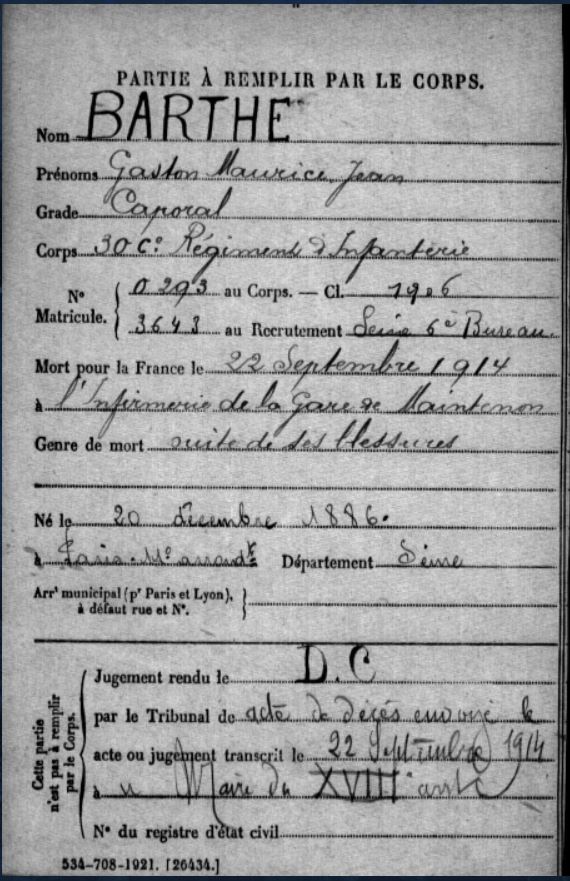 PARTIE À REMPLIR PAR LE CORPS.
Nom BARTHE
Prénoms Gaston Maurice Jean
Grade Caporal
Corps 30 Cº Régiment d'Infanterie
Nº Matricule. 0293 au Corps. — Cl. 1906
3643 au Recrutement Seine 6e Bureau
Mort pour la France le 22 Septembre 1914
à l'Infirmerie de la Gare de Maintenon
Genre de mort suite de ses blessures
Né le 20 décembre 1886.
à Paris Département Seine
Arrt municipal (pr Paris et Lyon), à défaut rue et Nº.
Cette partie n'est pas à remplir par le Corps.
Jugement rendu le D.C
par le Tribunal de acte de décès envoyé le
acte ou jugement transcrit le 22 Septembre 1914
à Maire du XVIII arrt
Nº du registre d'état civil
534-708-1921. [26434.]